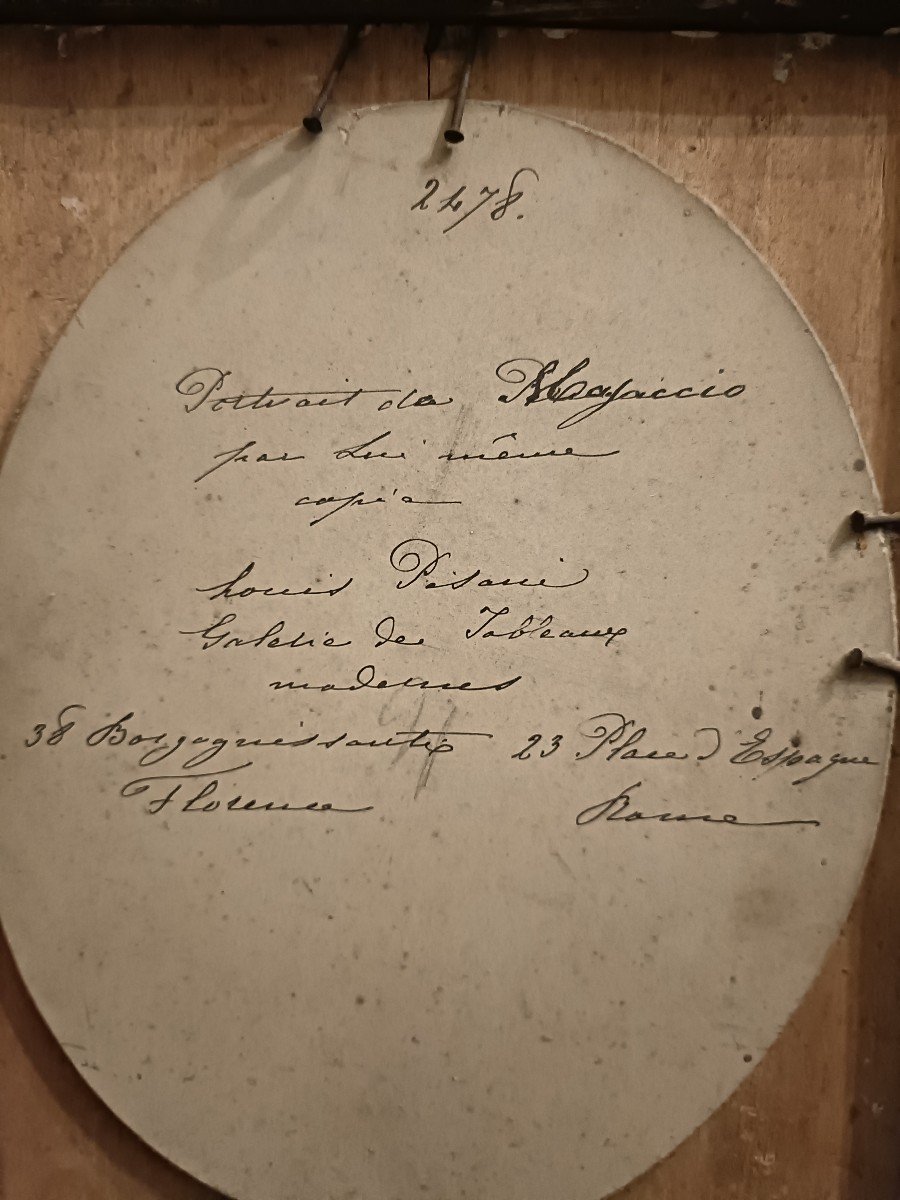 2478.
Portrait de Masaccio
par Lui même
copie
Louis Pisani
Galerie de Tableaux
modernes
38 Borgognissantis 23 Place d'Espagne
Florence Rome